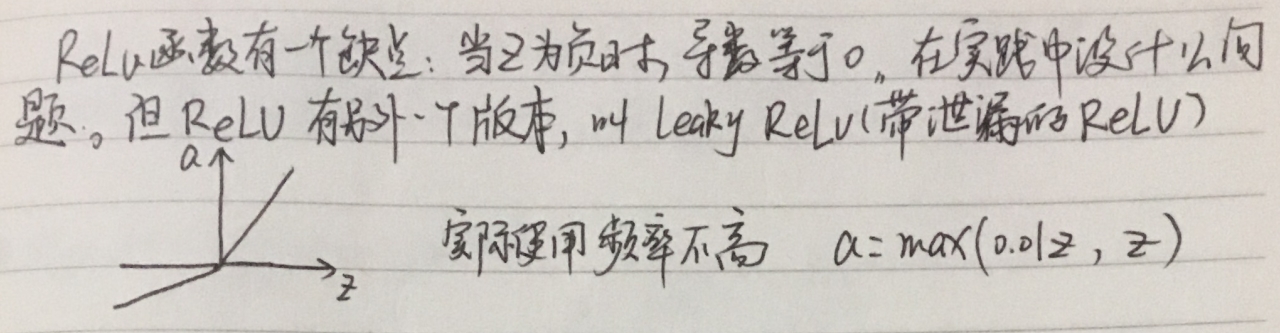 ReLu函数有一个缺点：当z为负时，导数等于0。在实践中没什么问
题。但ReLU有另外一个版本，叫 leaky ReLu(带泄漏的ReLU)
a
实际使用频率不高 a=max(0.01z, z)
z